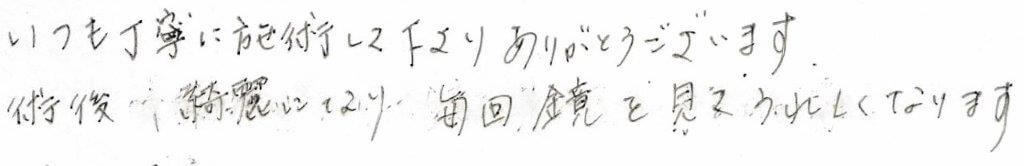 いつも丁寧に施術して下さりありがとうございます.
術後、綺麗になり 毎回、鏡を見てうれしくなります